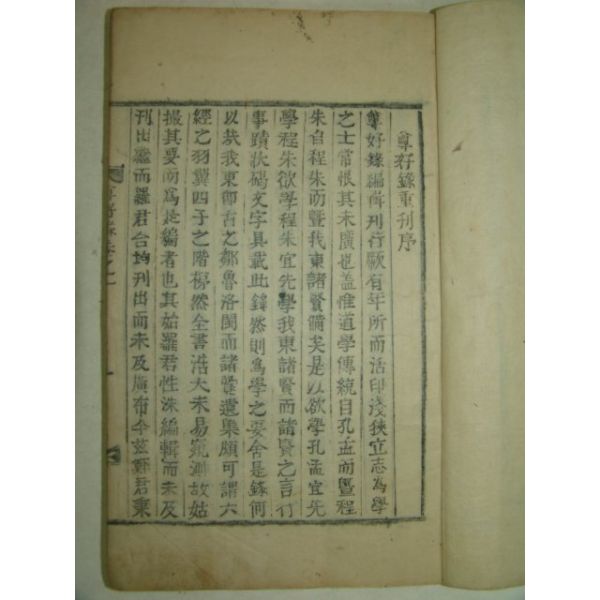 尊好錄重刊序
尊好錄編輯刊行厥有年所而活印淺狹立志爲學
之士常恨其未廣也盖惟道學傳統自孔孟而曁程
朱自程朱而曁我東諸賢備矣是以欲學孔孟宜先
學程朱欲學程朱宜先學我東諸賢而諸賢之言行
事蹟狀碣文字具載此錄然則爲學之要舍是錄何
以哉我東師古之鄒魯洛閩而諸賢遺集頗可謂六
經之羽翼四子之階梯然全書浩大未易窺測故姑
撮其要而爲是編者也其始羅君性洙編輯而未及
刊出處而羅君合均刊出而未及廣布今玆羅君秉
尊好錄卷之一